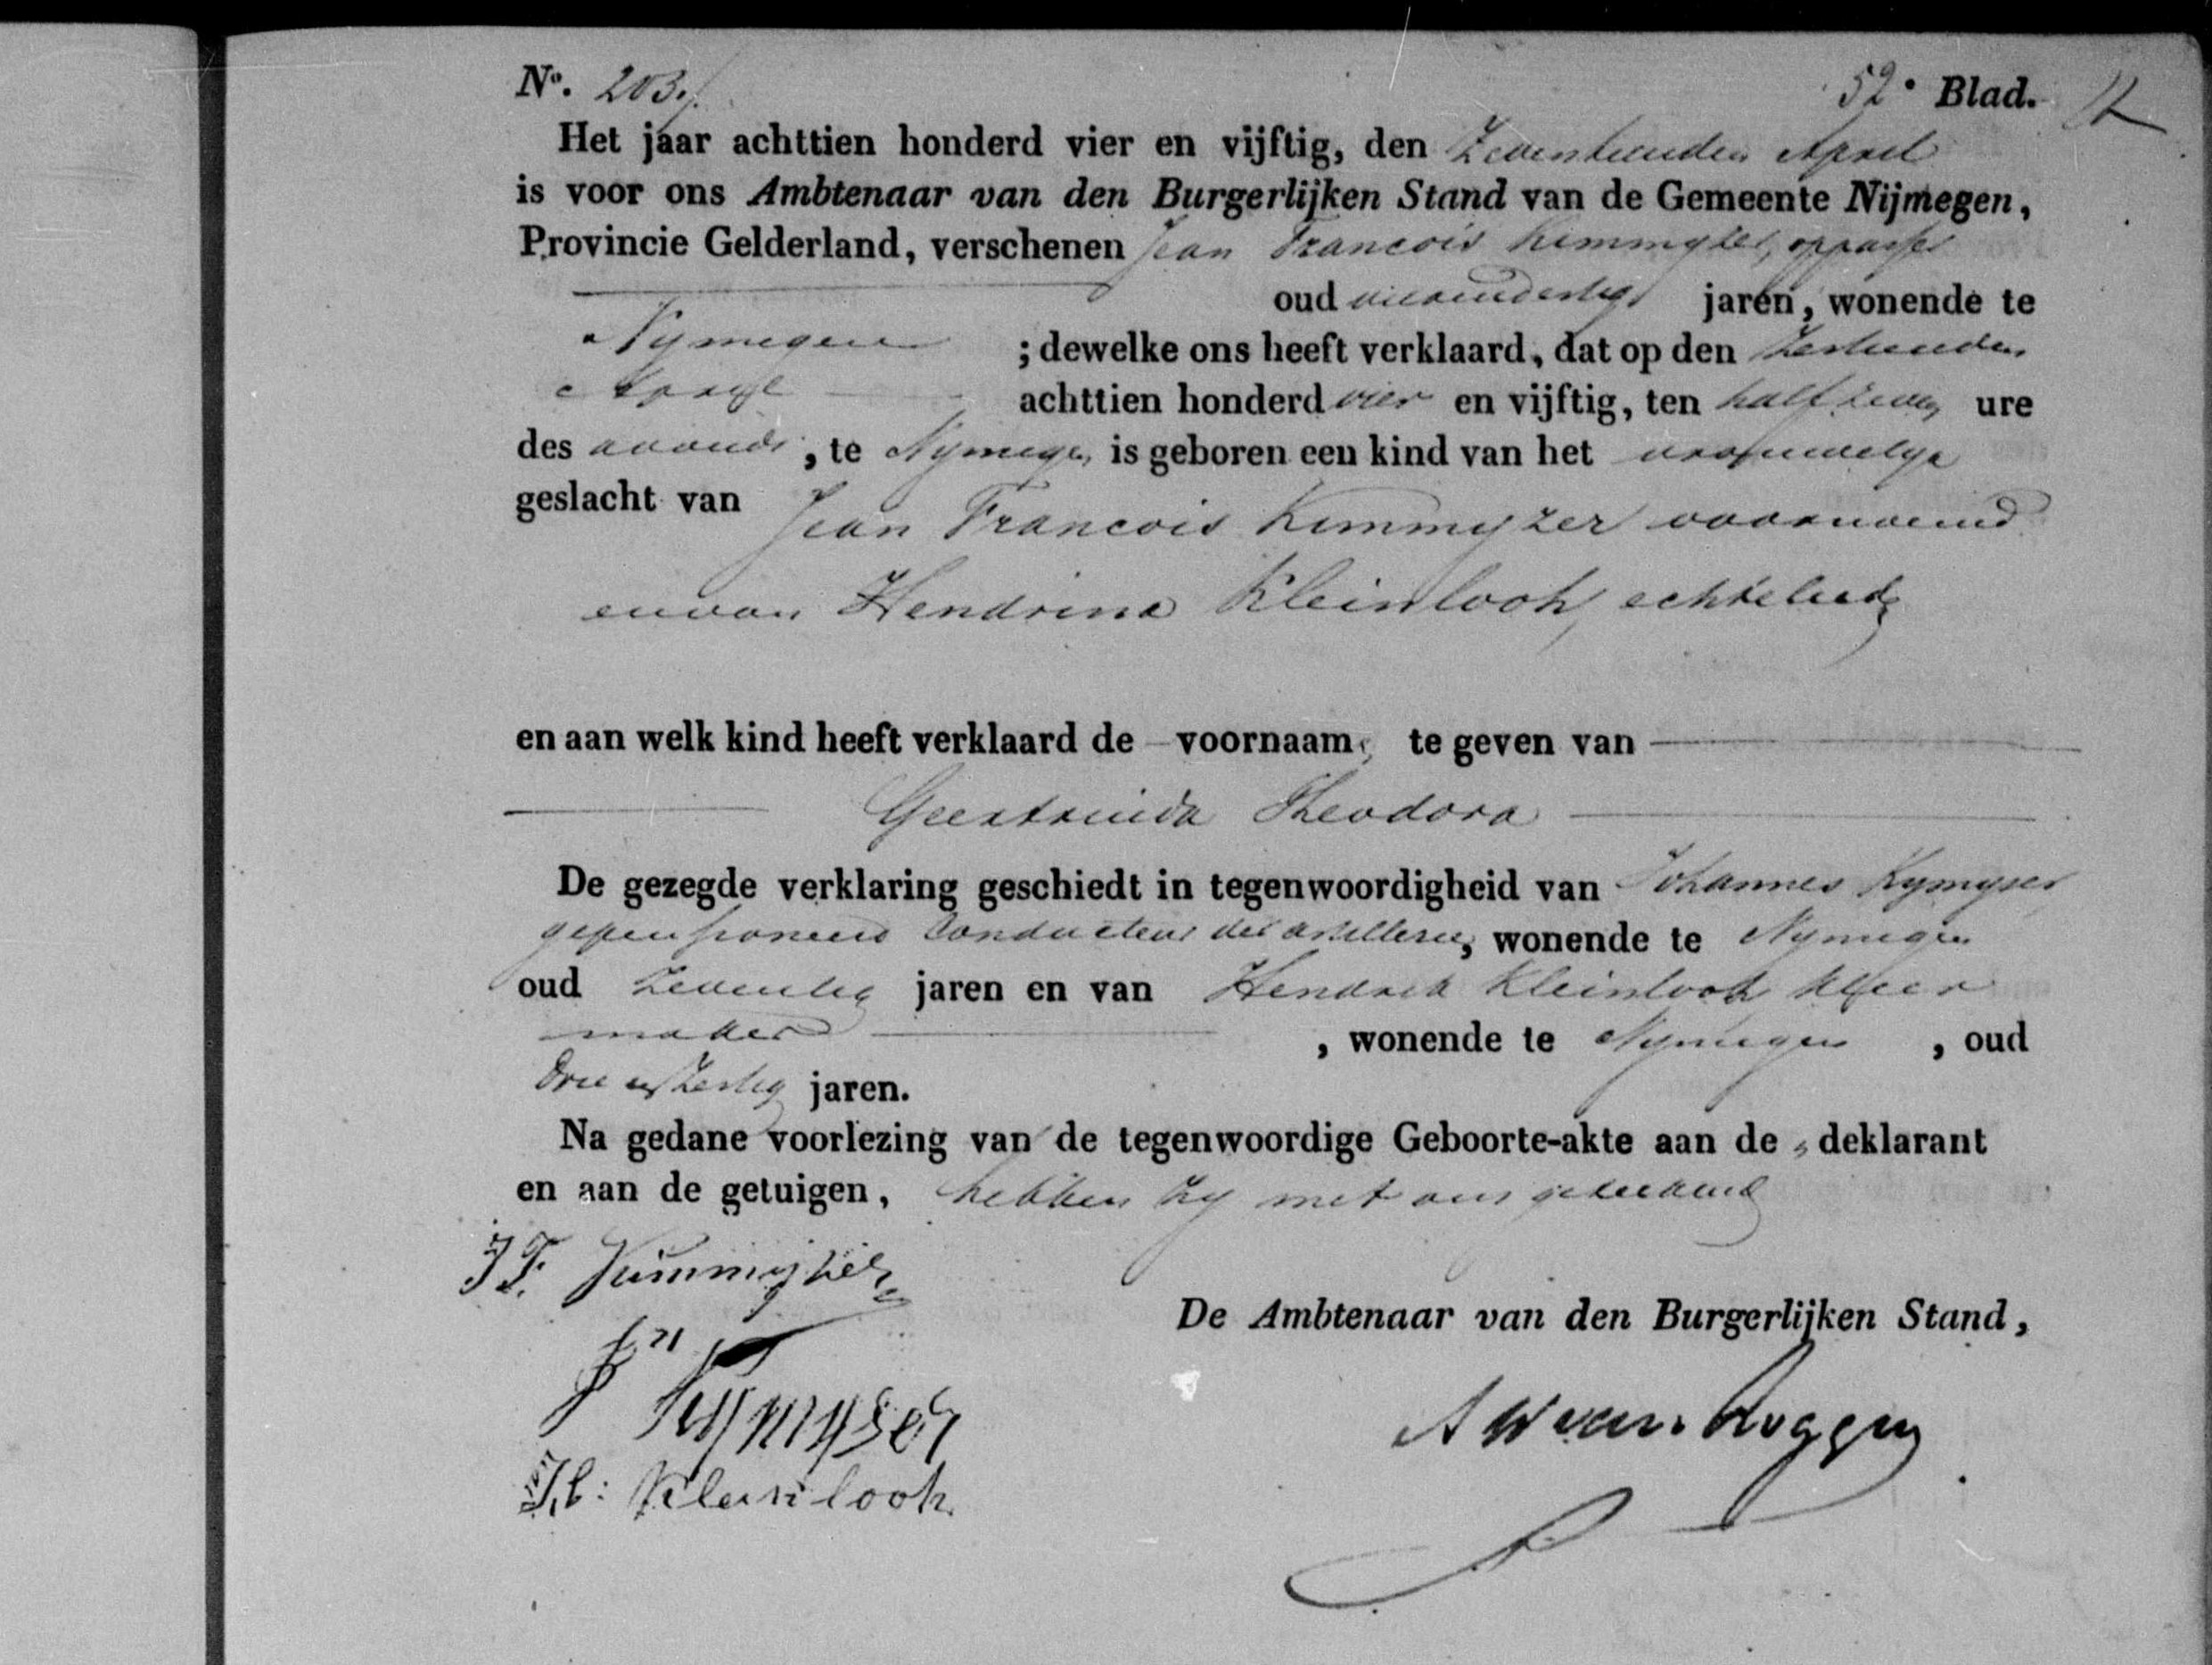 No. 203.
52e Blad.
Het jaar achttien honderd vier en vijftig, den Zeventienden April
is voor ons Ambtenaar van den Burgerlijken Stand van de Gemeente Nijmegen,
Provincie Gelderland, verschenen Jean Francois Kimmyzer, oppasser
oud vierendertig jaren, wonende te
Nymegen ; dewelke ons heeft verklaard, dat op den Zestienden
April achttien honderd vier en vijftig, ten half zeven ure
des avonds, te Nymegen is geboren een kind van het vrouwelyk
geslacht van Jean Francois Kimmyzer voornoemd
en van Hendrina Kleinlooh, echtelieden
en aan welk kind heeft verklaard de voornaam, te geven van
Geertruida Theodora
De gezegde verklaring geschiedt in tegenwoordigheid van Johannes Kymyser
gepensioneerd Conducteur der artillerie, wonende te Nymegen
oud Zeventig jaren en van Hendrik Kleinlooh kleer
maker , wonende te Nymegen , oud
Drie en Zestig jaren.
Na gedane voorlezing van de tegenwoordige Geboorte-akte aan de deklarant
en aan de getuigen, hebben zy met ons geteekend
J F. Kimmijzer
Kijmyser
De Ambtenaar van den Burgerlijken Stand,
H: Kleinlooh